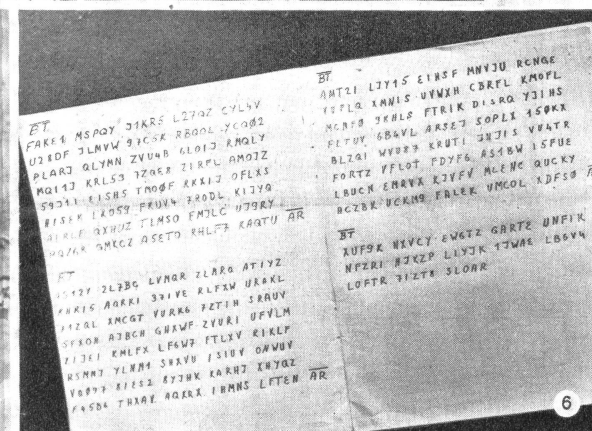 BT
FAKE1 MSPQY J1KR5 L27QZ CYL4V
U28DF JLMVW 97C5K RBQOL YCQ02
PLARJ QLYMN ZVU4B GLOIJ RMQLY
MQ11J KRL53 7ZQE8 ZIRFL AMOJZ
59J11 EISH5 TMOØF RKXIJ OFLXS
HISFK LXO59 FKUV4 7RODL KIJYQ
QXHUZ TLMSO FMJLC UJ9RY
QMKCZ QSETO RHLF7 KAQTU AR
BT
2L7BG LVMQR ZLNRQ ATIYZ
AQRKI 37IVE RLFXW UKQKL
XMCGT VURK6 7ZTIH SRAUV
SFXOH AJBCH GHXWF ZVURI UFVLM
KMLFX LF6W7 FTLXV RIKLF
RSMNJ YLNM1 SHXVU ISIUV ONWUV
8IES2 BYJHK KARHJ XHYQZ
F45D6 THXAV AQXRX IHMNS LFTEN AR
BT
AMT21 LJY15 EIHSF MNVJU RCNGE
XMNIS UVWXH CBRFL KMOFL
JKHLS FTRIK DI5RQ YJIHS
FLTUV 6B4VL ARSEJ SOPLX 15ØKX
BLZQI WVU87 KRUTI JHJIS VU4TR
FORTZ VFLOT FDYFG AS1BW 15FUE
LBUCH EMRVX KJVFV MLEHC QUCKY
HCZBK UCKM9 FALEK UMCOL XDFSØ
BT
XUF9K HXVCY EWGTZ GARTZ UNFIK
NFZRI HJXZP LIYJK 1JWAE LBGV4
LOFTR 7IZTX SLOAR
6